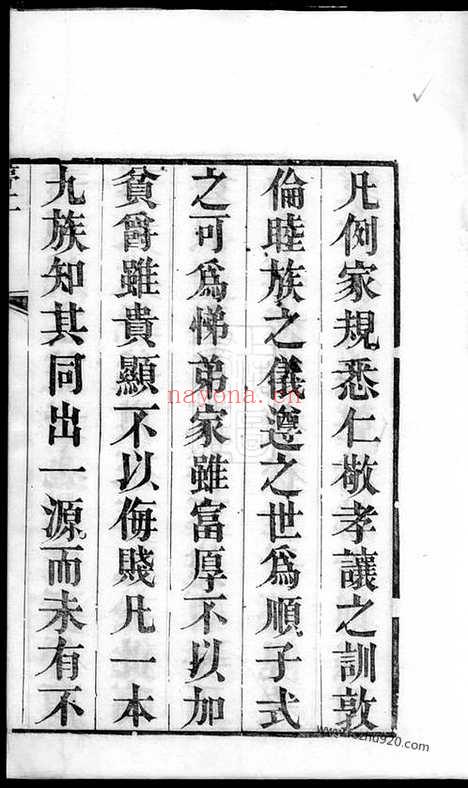 凡例家規悉仁敬孝讓之訓敦
倫睦族之儀遵之世爲順子式
之可爲悌弟家雖富厚不以加
貧爵雖貴顯不以侮賤凡一本
九族知其同出一源而未有不
nayona.cn